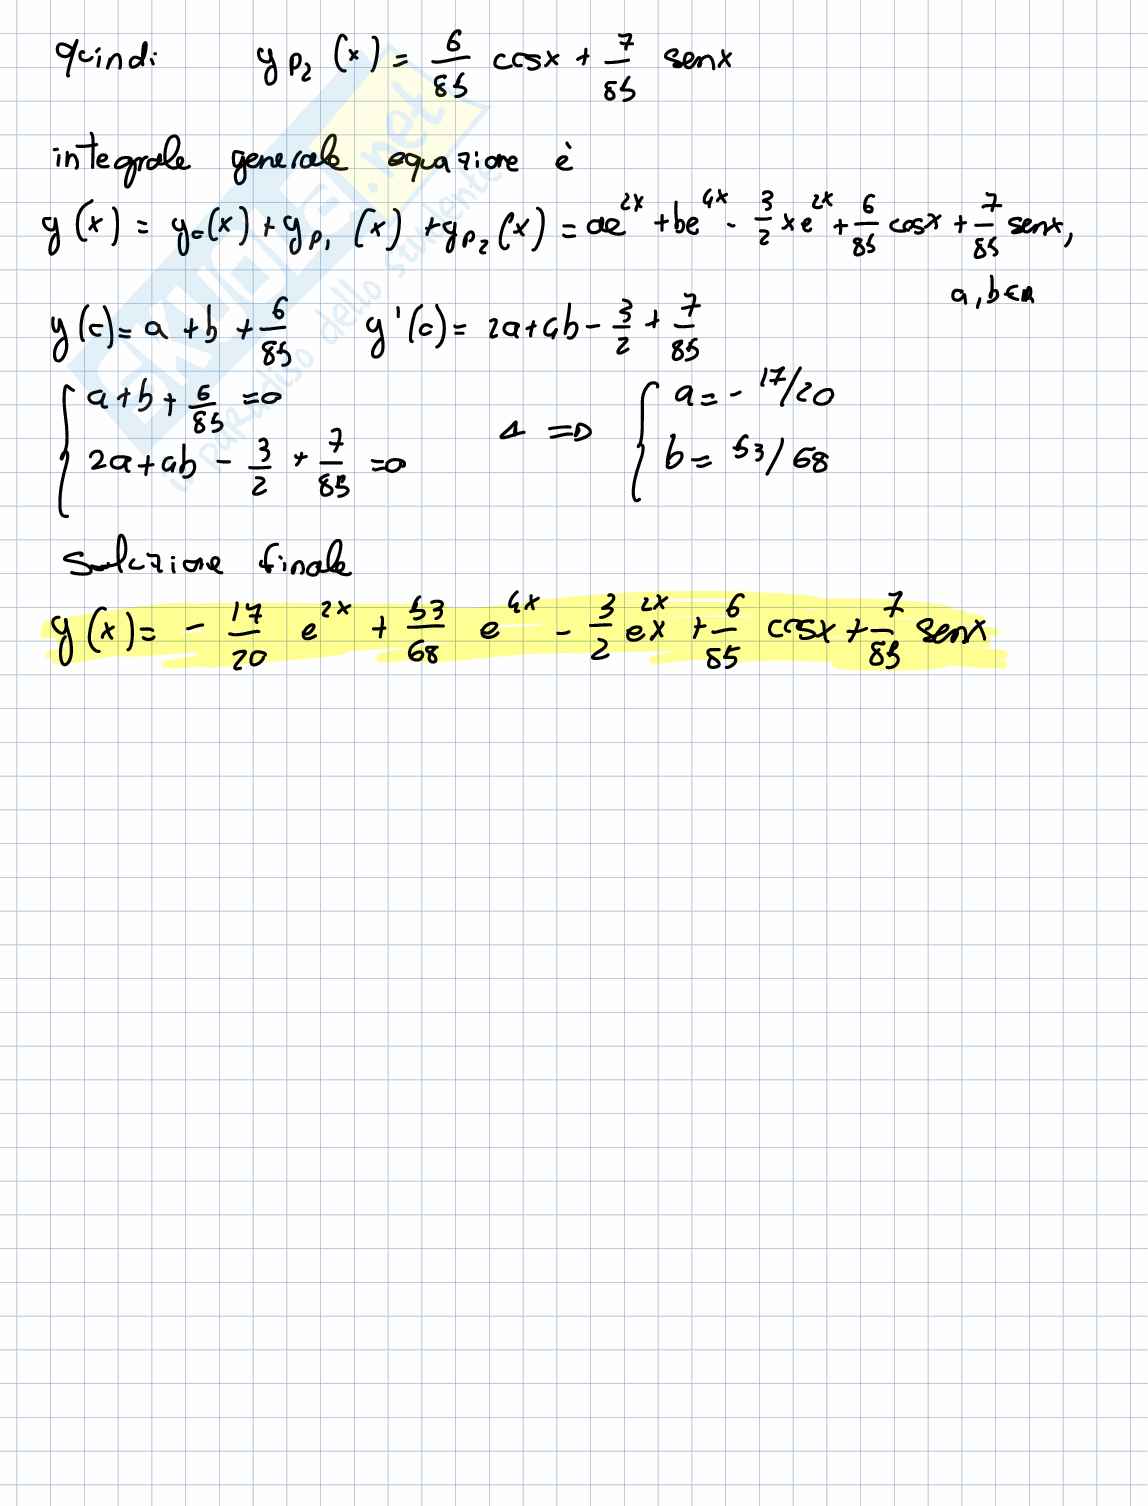 quindi y_{p_2}(x) = \frac{6}{85} cosx + \frac{7}{85} senx
integrale generale equazione è
y(x) = y_0(x) + y_{p_1}(x) + y_{p_2}(x) = ae^{2x} + be^{4x} - \frac{3}{2} xe^{2x} + \frac{6}{85} cosx + \frac{7}{85} senx,
a, b ∈ R
y(0) = a + b + \frac{6}{85} y'(0) = 2a + 4b - \frac{3}{2} + \frac{7}{85}
a + b + \frac{6}{85} = 0
2a + 4b - \frac{3}{2} + \frac{7}{85} = 0
⇒
a = - 17/20
b = 53/68
Soluzione finale
y(x) = - \frac{17}{20} e^{2x} + \frac{53}{68} e^{4x} - \frac{3}{2} e^{2x}x + \frac{6}{85} cosx + \frac{7}{85} senx
SKUOLA.net
il paradiso dello studente